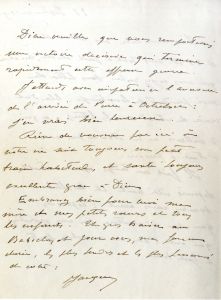 Dieu veuille que nous remportions
une victoire décisive qui termine
rapidement cette affreuse guerre.
J'attends avec impatience l'annonce
de l'arrivée de
J'en serai bien heureux.
Rien de nouveau par ici :
notre vie suit toujours son petit
train habituel, et santé toujours
excellente grâce à Dieu
Embrassez bien pour moi ma
mère mes petites sœurs et tous
les enfants. Et gros baisers au
et pour vous, ma femme
chérie, les plus tendres et les plus passionnés
de votre
Jacques